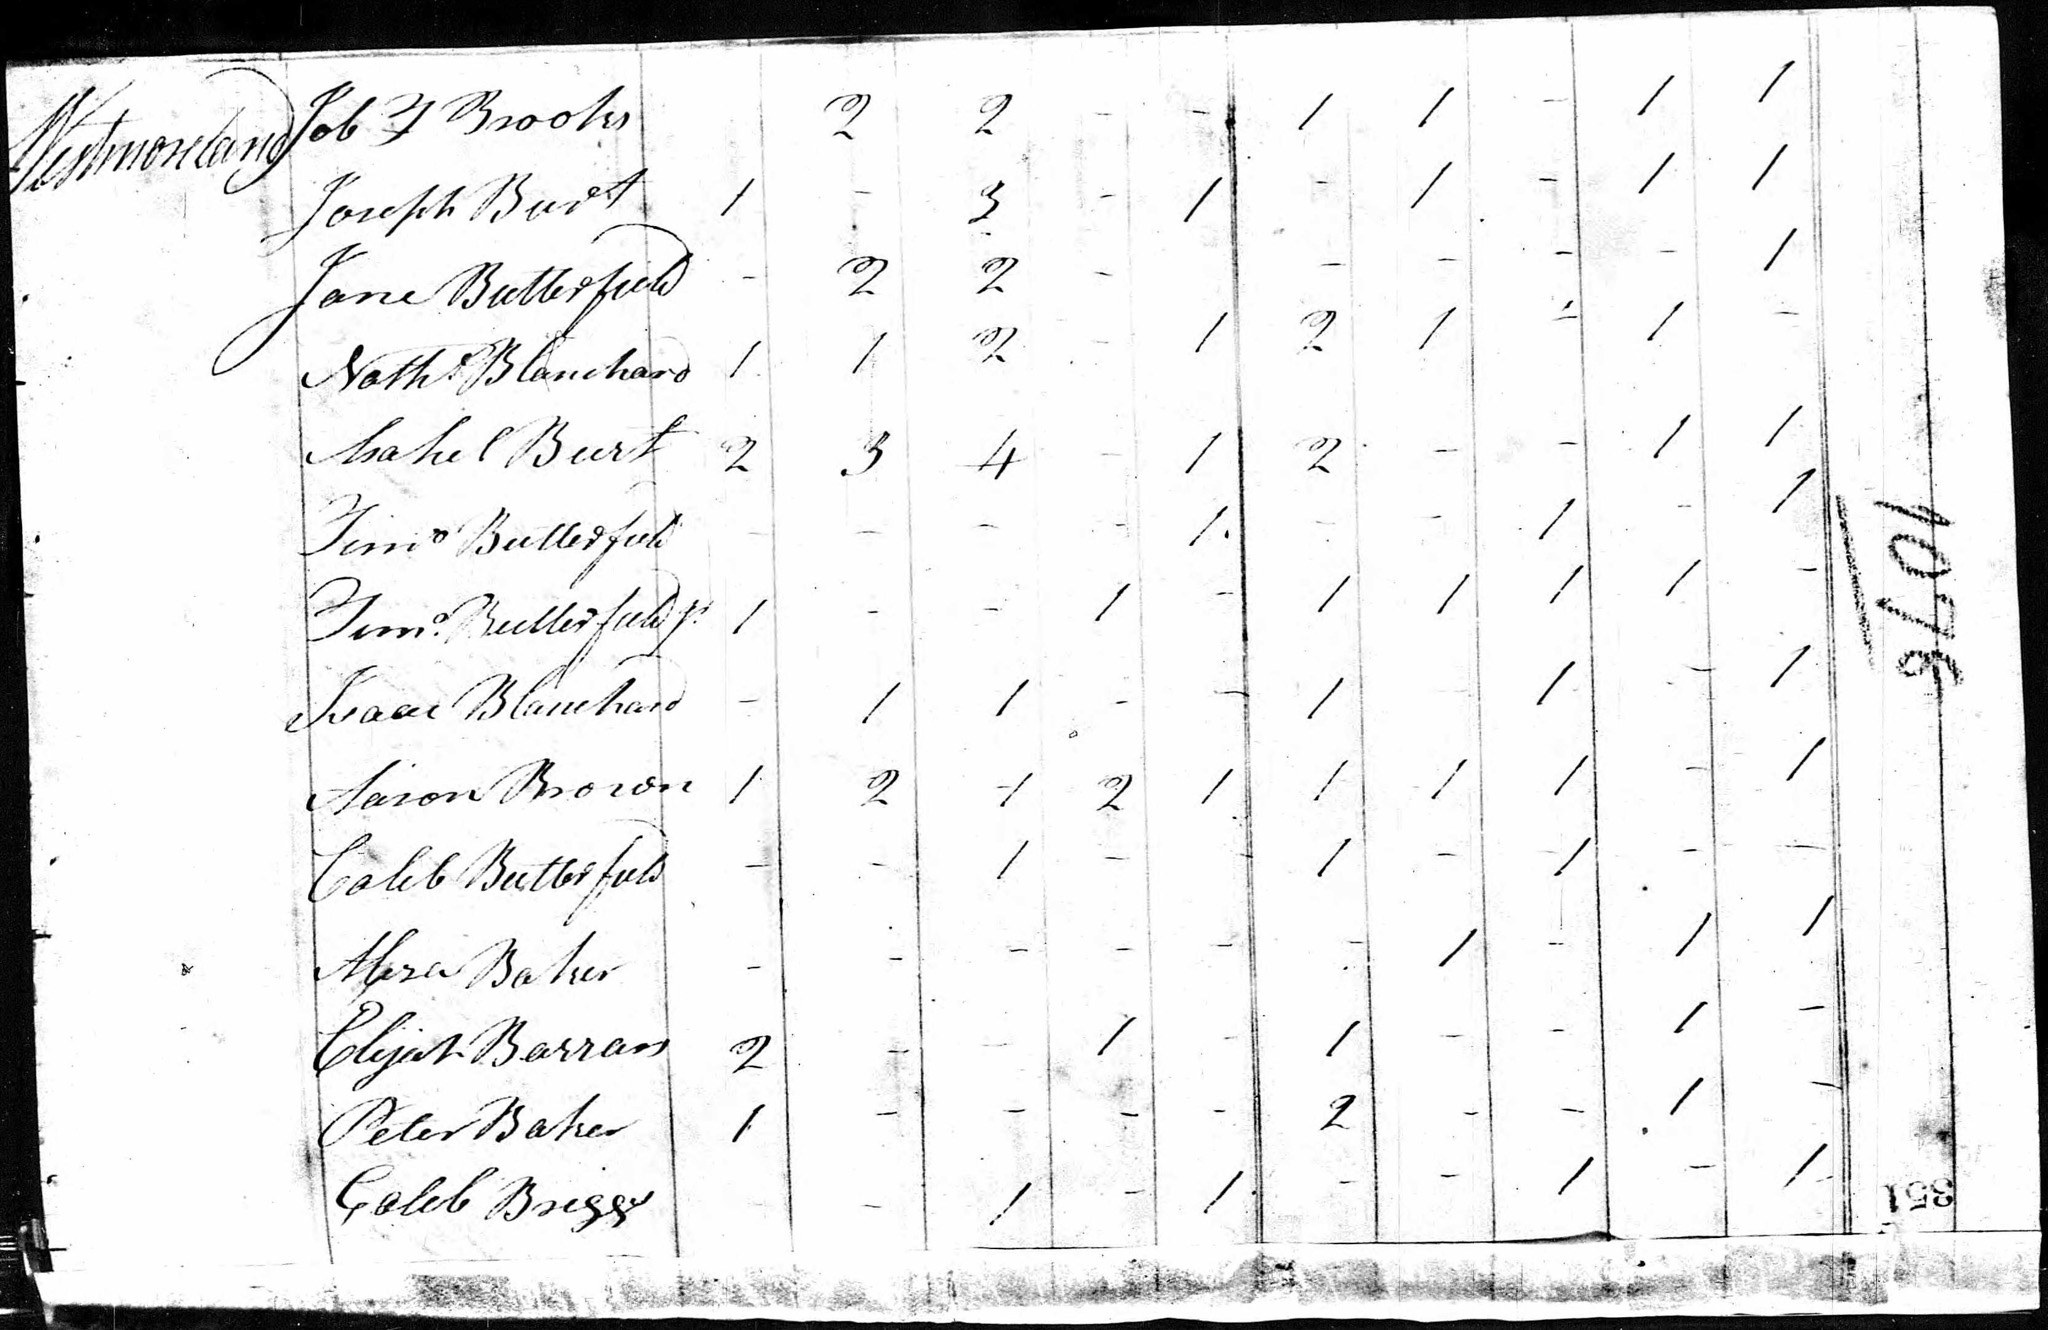 Westmoreland
Job F Brooks 2 2 - - 1 1 - 1 1
Joseph Burt 1 - 3 - 1 - 1 - 1 1
Jane Butterfield - 2 2 - - - - - 1
Nathl Blanchard 1 1 2 - 1 2 1 - 1 -
Asahel Burt 2 3 4 - 1 2 - - 1 1
Timo Butterfield - - - - 1 - - 1 - 1
Timo. Butterfield jr 1 - - 1 - 1 1 1 1 -
Isaac Blanchard - 1 1 - - 1 - 1 - 1
Aaron Brown 1 2 1 2 1 1 1 1 - 1
Caleb Butterfield - - 1 - - 1 - 1 - -
Baker - - - - - - 1 - 1 1
Elijah Barrows 2 - - 1 - 1 - - 1 -
Peter Baker 1 - - - - 2 - - 1 -
Caleb Briggs - - 1 - 1 - - 1 - 1
351